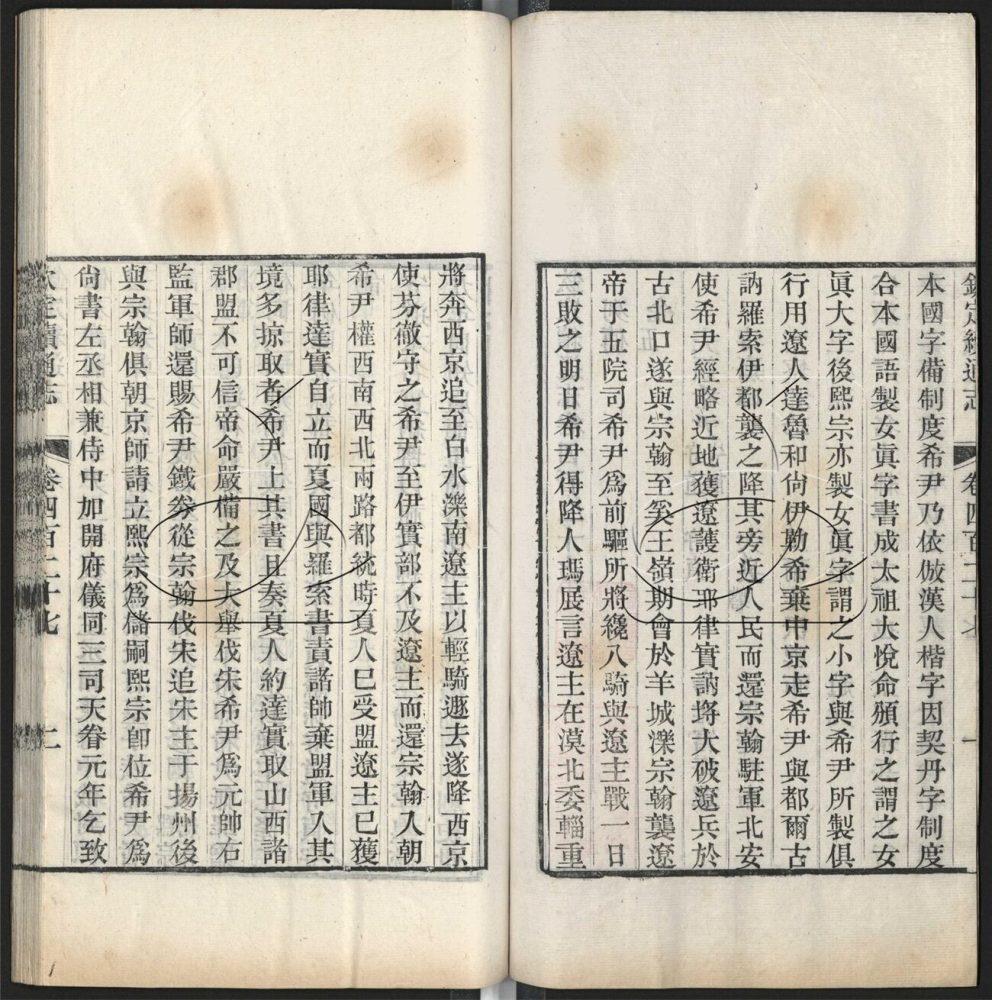 欽定續通志 卷四百二十七 一
本國字備制度希尹乃依倣漢人楷字因契丹字制度
合本國語製女眞字書成太祖大悅命頒行之謂之女
眞大字後熙宗亦製女眞字謂之小字與希尹所製俱
行用遼人達魯和尙伊勒希棄中京走希尹與都爾古
訥羅索伊都襲之降其旁近人民而還宗翰駐軍北安
使希尹經略近地獲遼護衛耶律實訥埒大破遼兵於
古北口遂與宗翰至奚王嶺期會於羊城濼宗翰襲遼
帝于五院司希尹爲前驅所將纔八騎與遼主戰一日
三敗之明日希尹得降人瑪展言遼主在漠北委輜重
將奔西京追至白水濼南遼主以輕騎遯去遂降西京
使芬徹守之希尹至伊實部不及遼主而還宗翰入朝
希尹權西南西北兩路都統時夏人已受盟遼主已獲
耶律達實自立而夏國與羅索書責諸帥棄盟軍入其
境多掠取者希尹上其書且奏夏人約達實取山西諸
郡盟不可信帝命嚴備之及大舉伐宋希尹爲元帥右
監軍師還賜希尹鐵券從宗翰伐宋追宋主于揚州後
與宗翰俱朝京師請立熙宗爲儲嗣熙宗卽位希尹爲
尙書左丞相兼侍中加開府儀同三司天眷元年乞致
欽定續通志 卷四百二十七 二